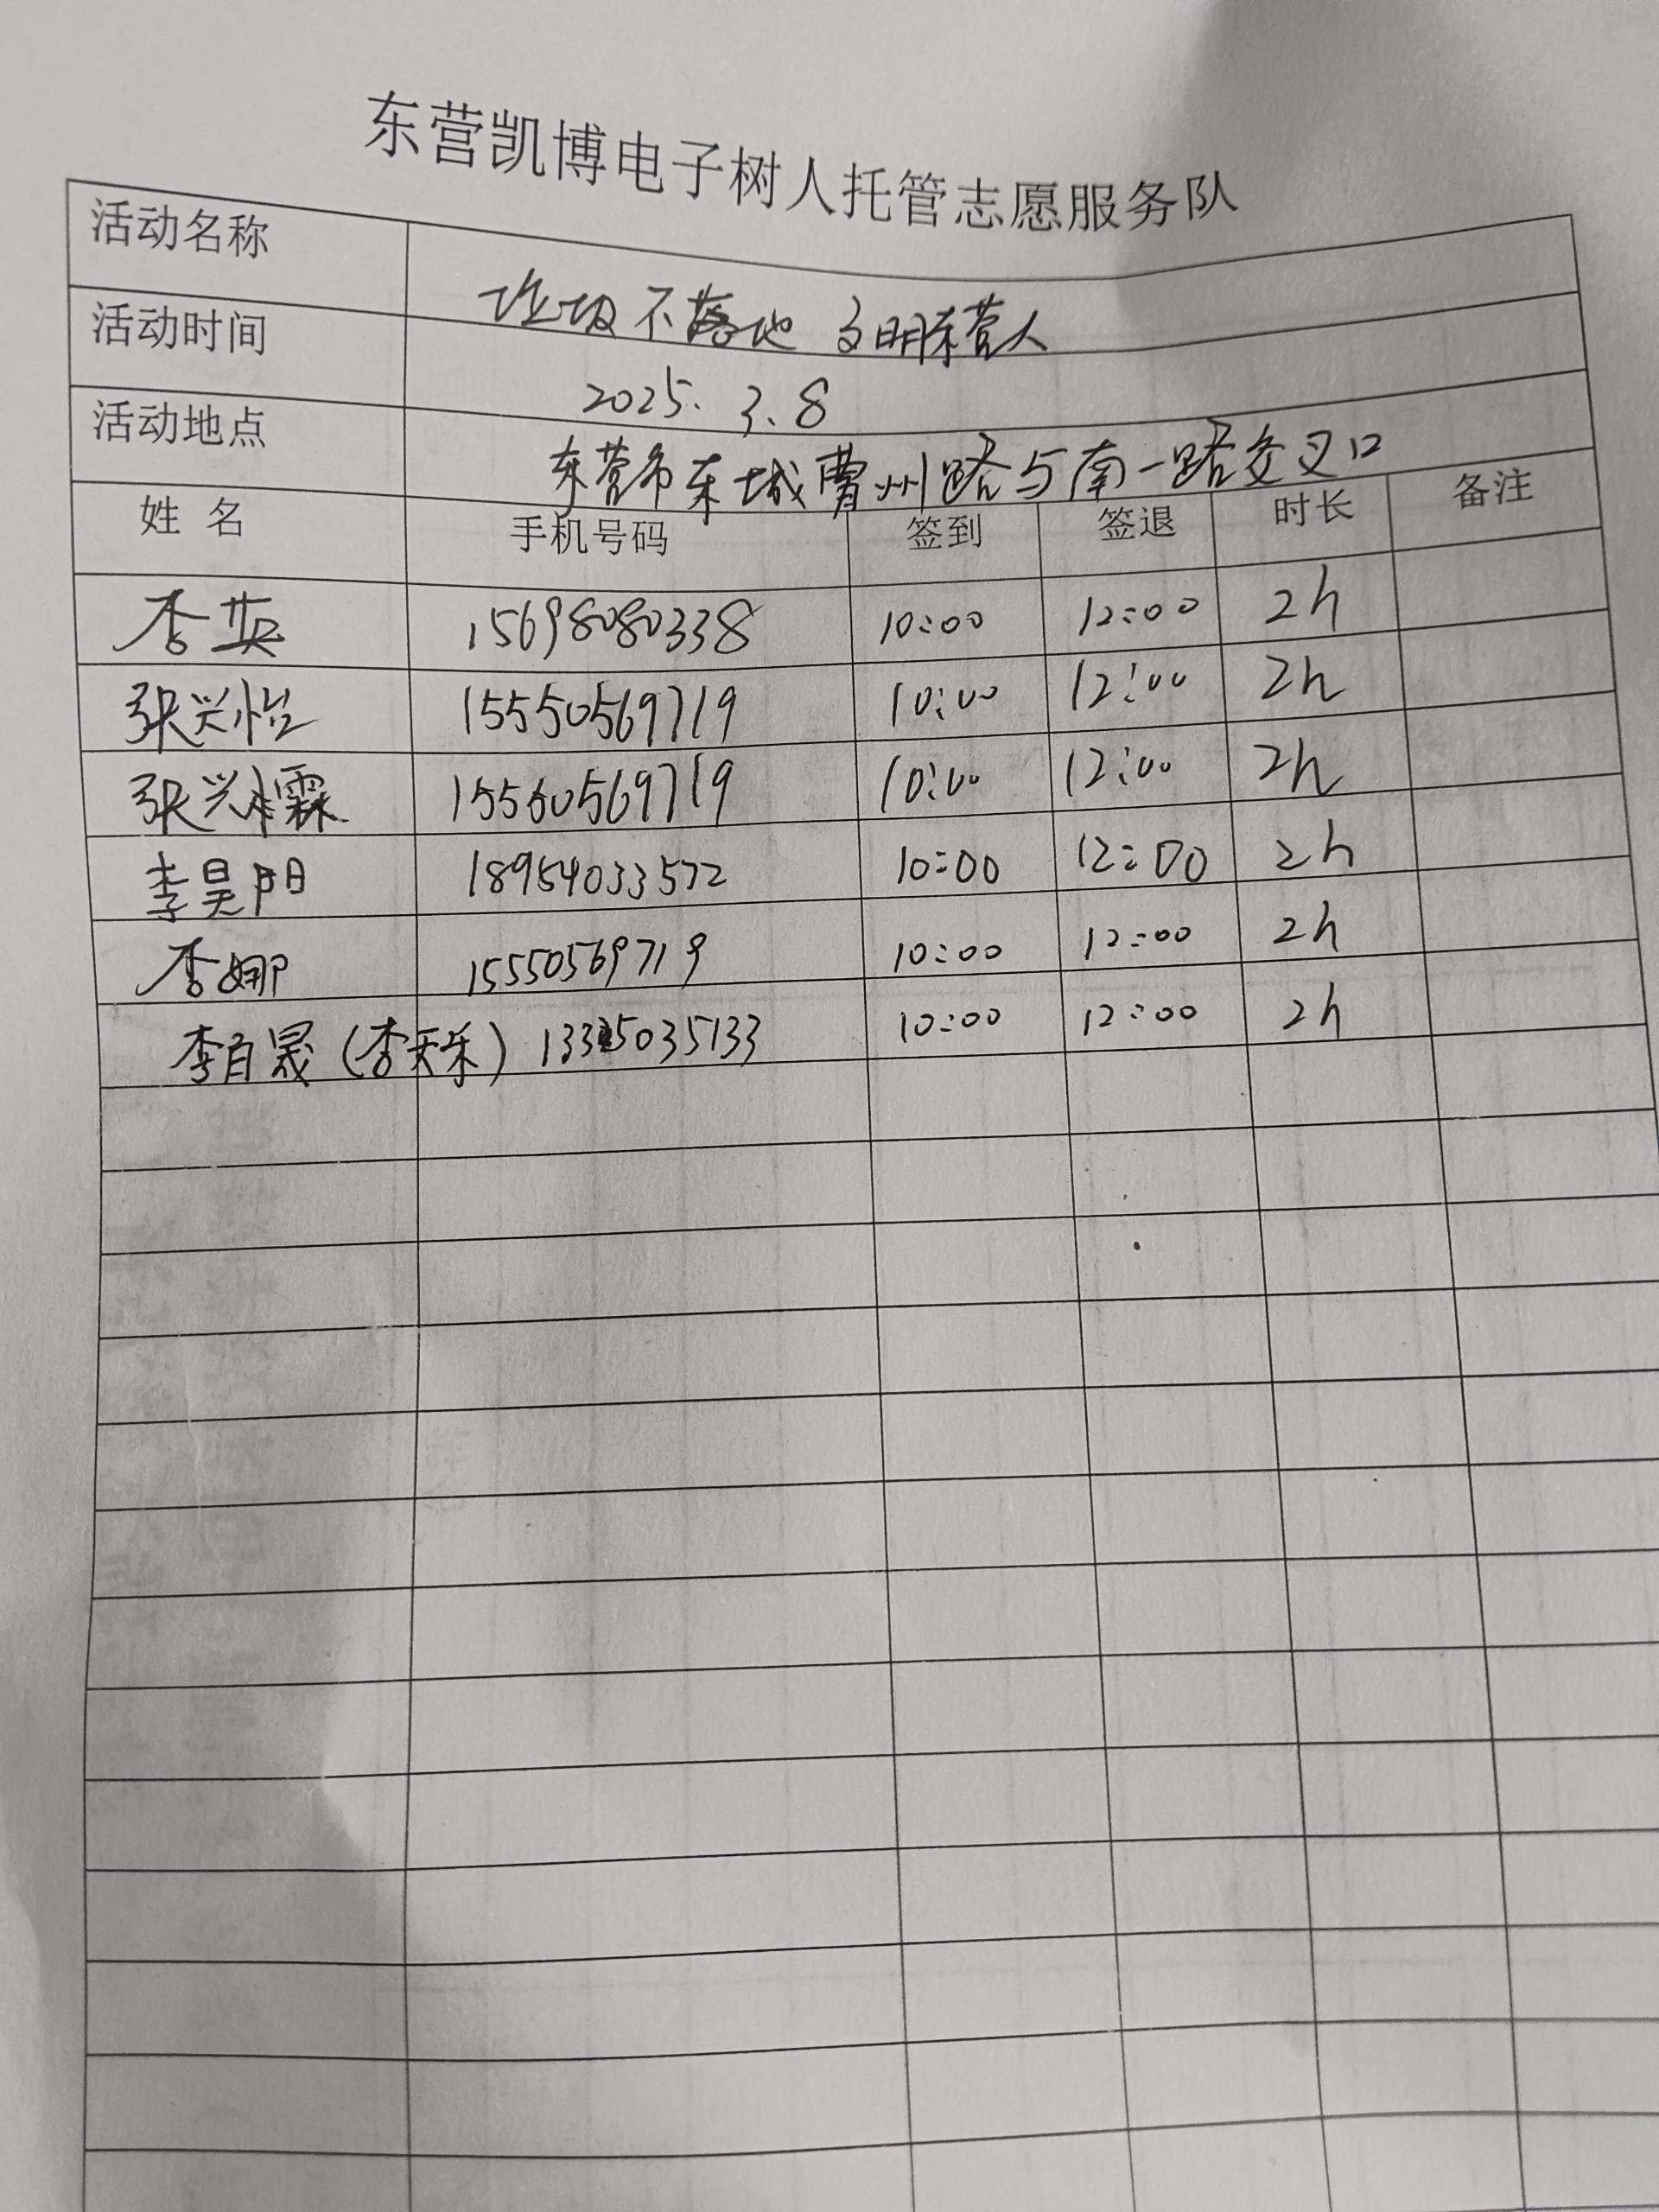 东营凯博电子树人托管志愿服务队
活动名称 垃圾不落地 文明东营人
活动时间 2025.3.8
活动地点 东营市东城曹州路与南一路交叉口
姓 名 手机号码 签到 签退 时长 备注
李英 15698080338 10:00 12:00 2h
张兴怡 15550569719 10:00 12:00 2h
张兴霖 15550569719 10:00 12:00 2h
李昊阳 18954033572 10:00 12:00 2h
李娜 15550569719 10:00 12:00 2h
李百晟(李天乐) 13325035133 10:00 12:00 2h